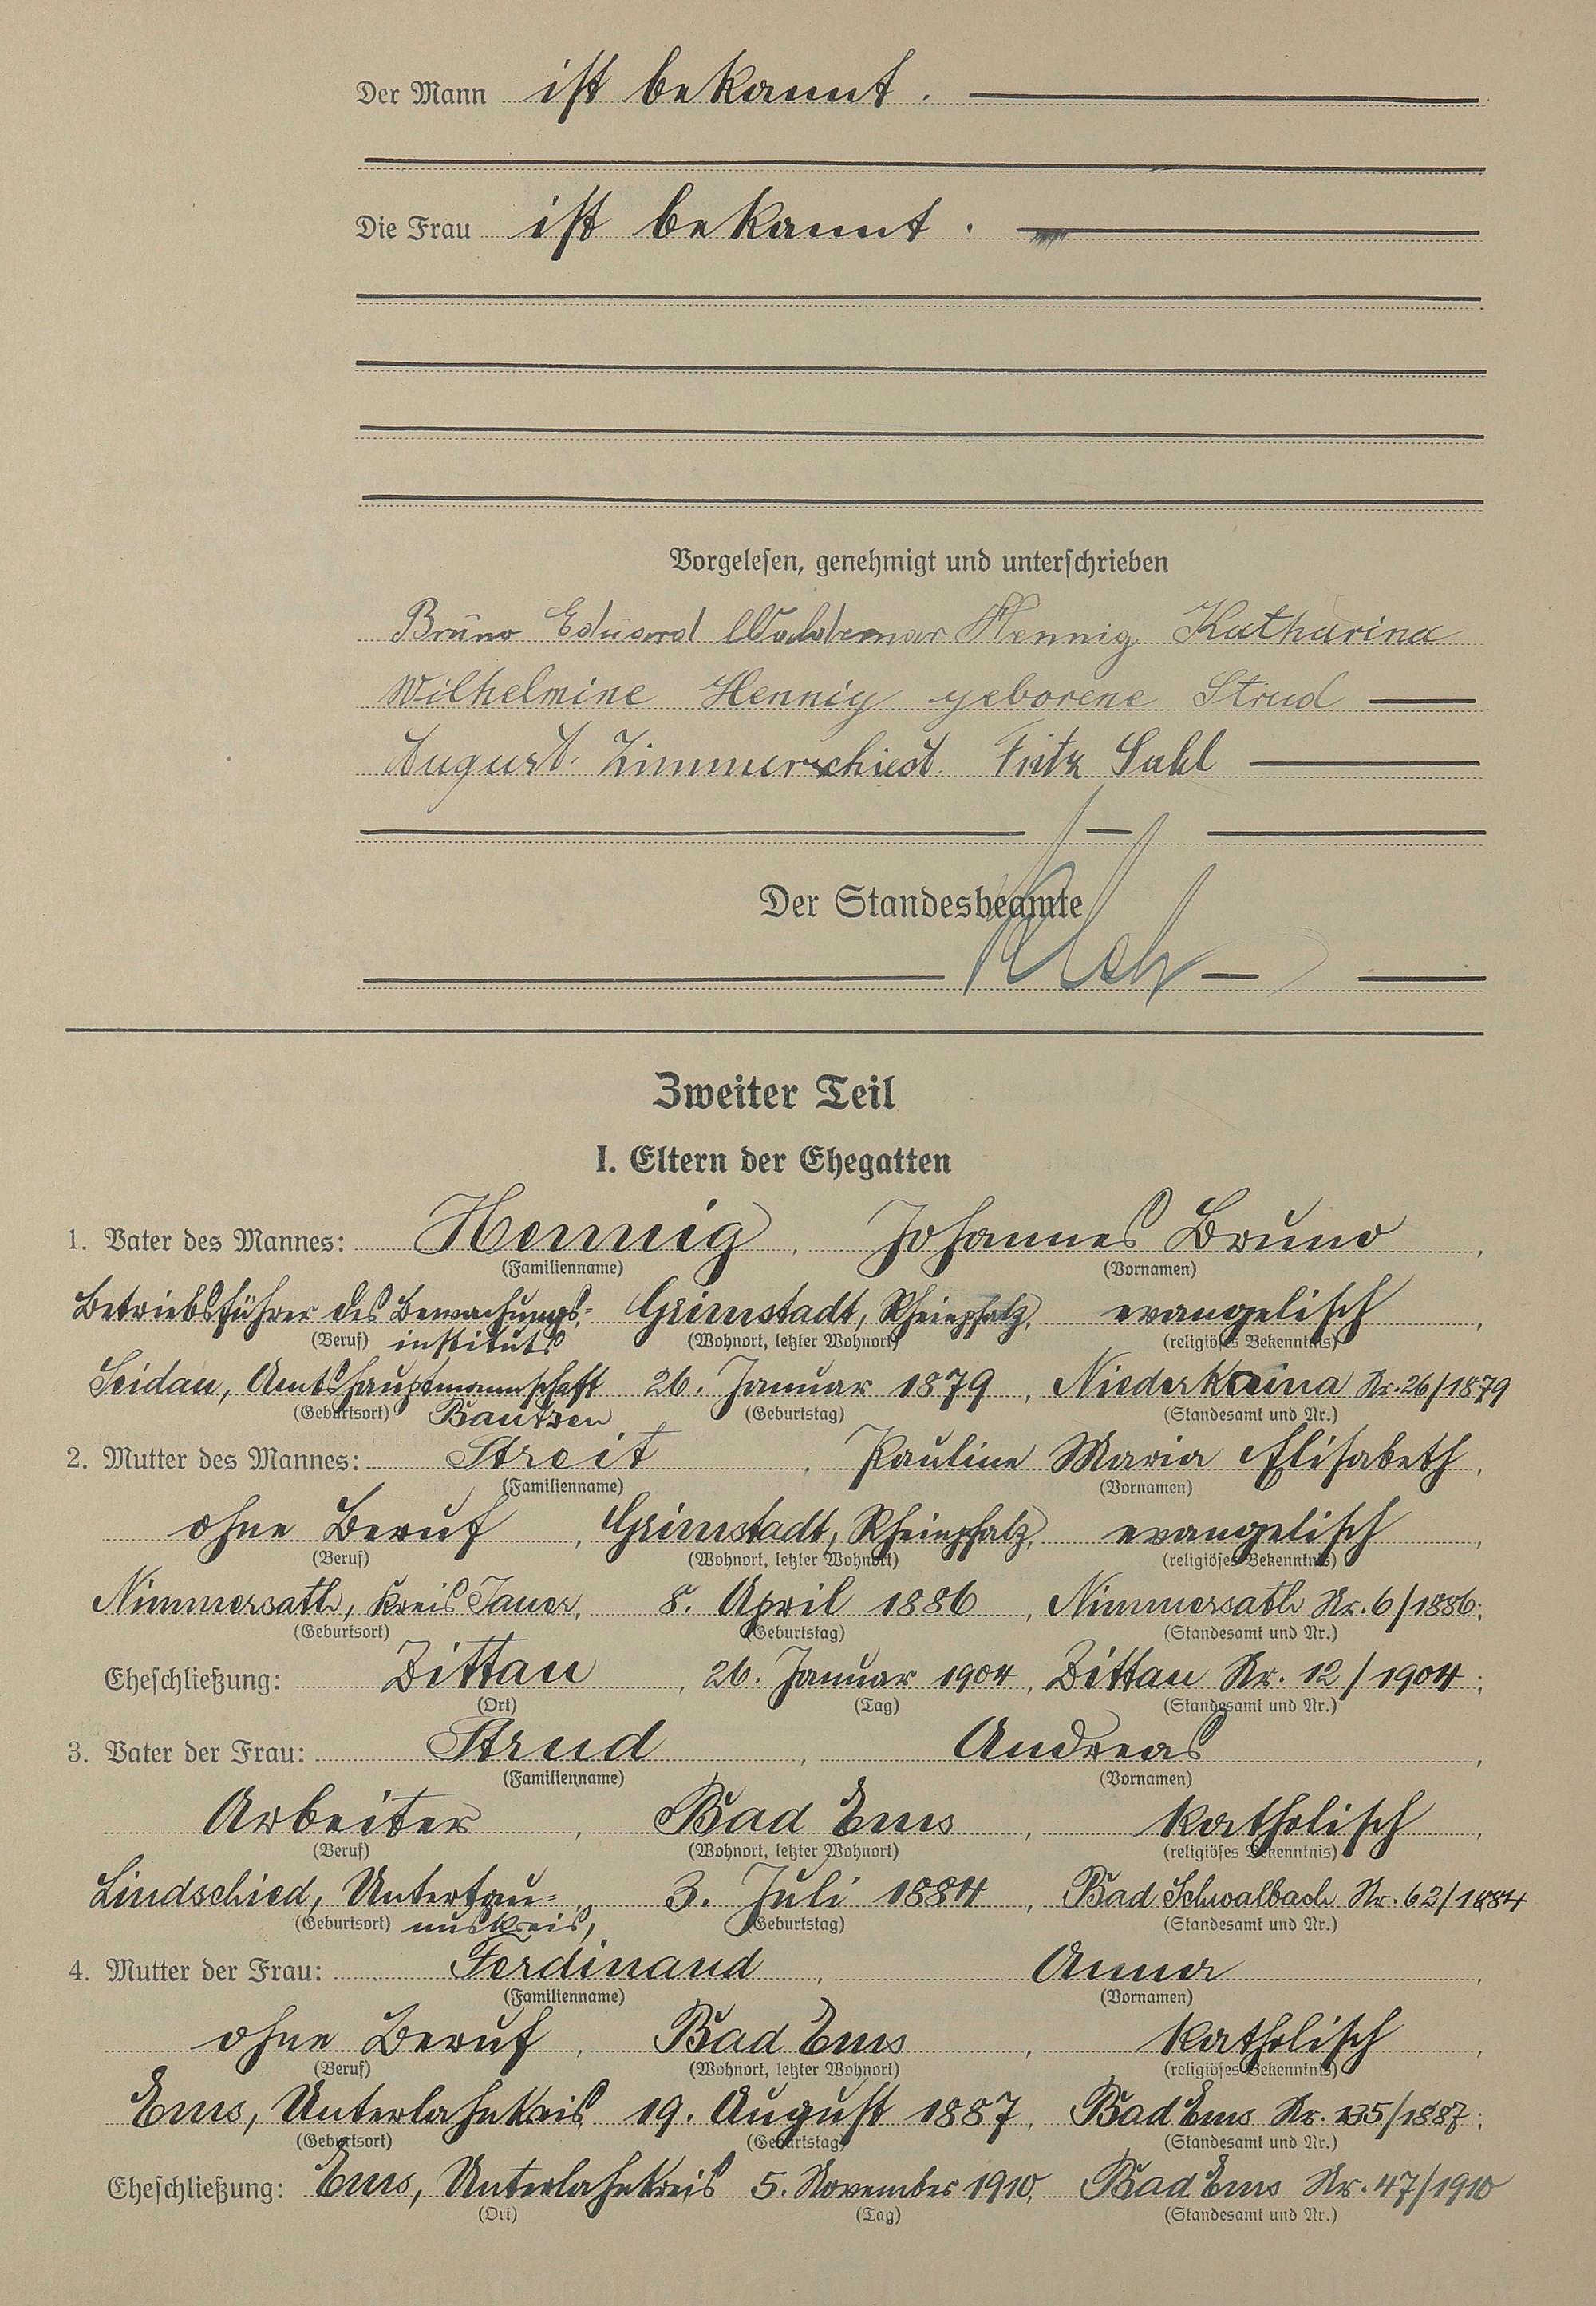 Der Mann ist bekannt.
Die Frau ist bekannt.
Vorgelesen, genehmigt und unterschrieben
Bruno Eduard Waldemar Hennig Katharina
Wilhelmine Hennig geborene Strud
August Zimmerschied Fritz Sahl
Der Standesbeamte
Zweiter Teil
I. Eltern der Ehegatten
1. Vater des Mannes: Hennig, Johannes Bruno,
(Familienname) (Vornamen)
Betriebsführer des Bewachungs= Grünstadt, Rheinpfalz, evangelisch,
(Beruf) instituts (Wohnort, letzter Wohnort) (religiöses Bekenntnis)
Seidau, Amtshauptmannschaft 26. Januar 1879, Niederkaina Nr. 26/1879
(Geburtsort) Bautzen (Geburtstag) (Standesamt und Nr.)
2. Mutter des Mannes: Streit, Pauline Maria Elisabeth,
(Familienname) (Vornamen)
ohne Beruf, Grünstadt, Rheinpfalz, evangelisch,
(Beruf) (Wohnort, letzter Wohnort) (religiöses Bekenntnis)
Nimmersath, Kreis Jauer, 8. April 1886, Nimmersath Nr. 6/1886;
(Geburtsort) (Geburtstag) (Standesamt und Nr.)
Eheschließung: Zittau, 26. Januar 1904, Zittau Nr. 12/1904;
(Ort) (Tag) (Standesamt und Nr.)
3. Vater der Frau: Strud, Andreas,
(Familienname) (Vornamen)
Arbeiter, Bad Ems, katholisch,
(Beruf) (Wohnort, letzter Wohnort) (religiöses Bekenntnis)
Lindschied, Untertau= 3. Juli 1884, Bad Schwalbach Nr. 62/1884
(Geburtsort) nuskreis, (Geburtstag) (Standesamt und Nr.)
4. Mutter der Frau: Ferdinand, Anna,
(Familienname) (Vornamen)
ohne Beruf, Bad Ems, katholisch,
(Beruf) (Wohnort, letzter Wohnort) (religiöses Bekenntnis)
Ems, Unterlahnkreis 19. August 1887, Bad Ems Nr. 135/1887;
(Geburtsort) (Geburtstag) (Standesamt und Nr.)
Eheschließung: Ems, Unterlahnkreis 5. November 1910, Bad Ems Nr. 47/1910
(Ort) (Tag) (Standesamt und Nr.)